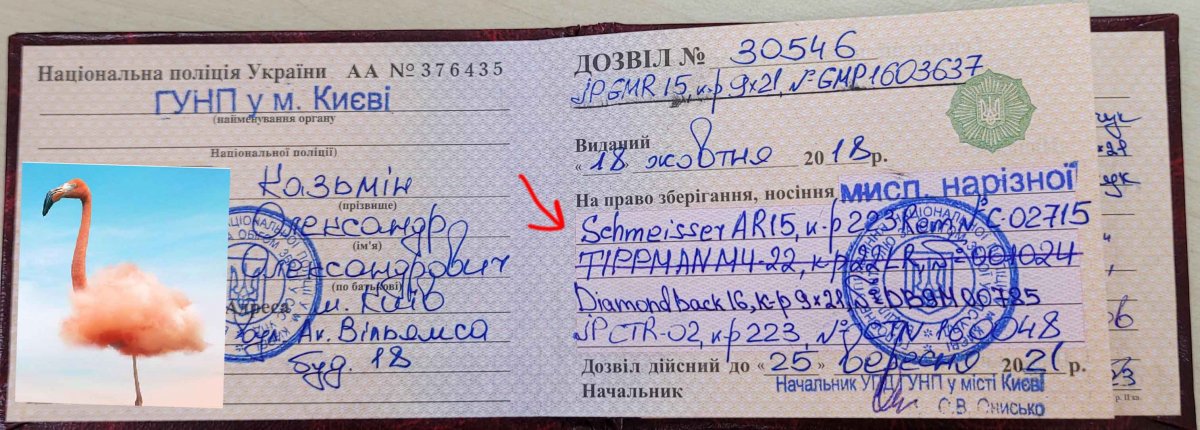 Національна поліція України АА №376435
ГУНП у м. Києві
(найменування органу
Національної поліції)
Казьмін
(прізвище)
Олександр
(ім'я)
Олександрович
(по батькові)
Адреса м. Київ
Ак. Вільямса
буд. 18
ДОЗВІЛ № 30546
JP GMR 15, к-р 9х21, № GMP1603637
Виданий
«18» жовтня 2018 р.
На право зберігання, носіння мисл. нарізної
Schmeisser AR15, к-р 223 Rem, 02715
TIPPMAN M4-22, к-р 22LR 001024
Diamondback 16, к-р 9х21
JP CTR-02, к-р 223, №
Дозвіл дійсний до «25» березня 2021 р.
Начальник
Начальник УПД ГУНП у місті Києві
О.В. Онисько